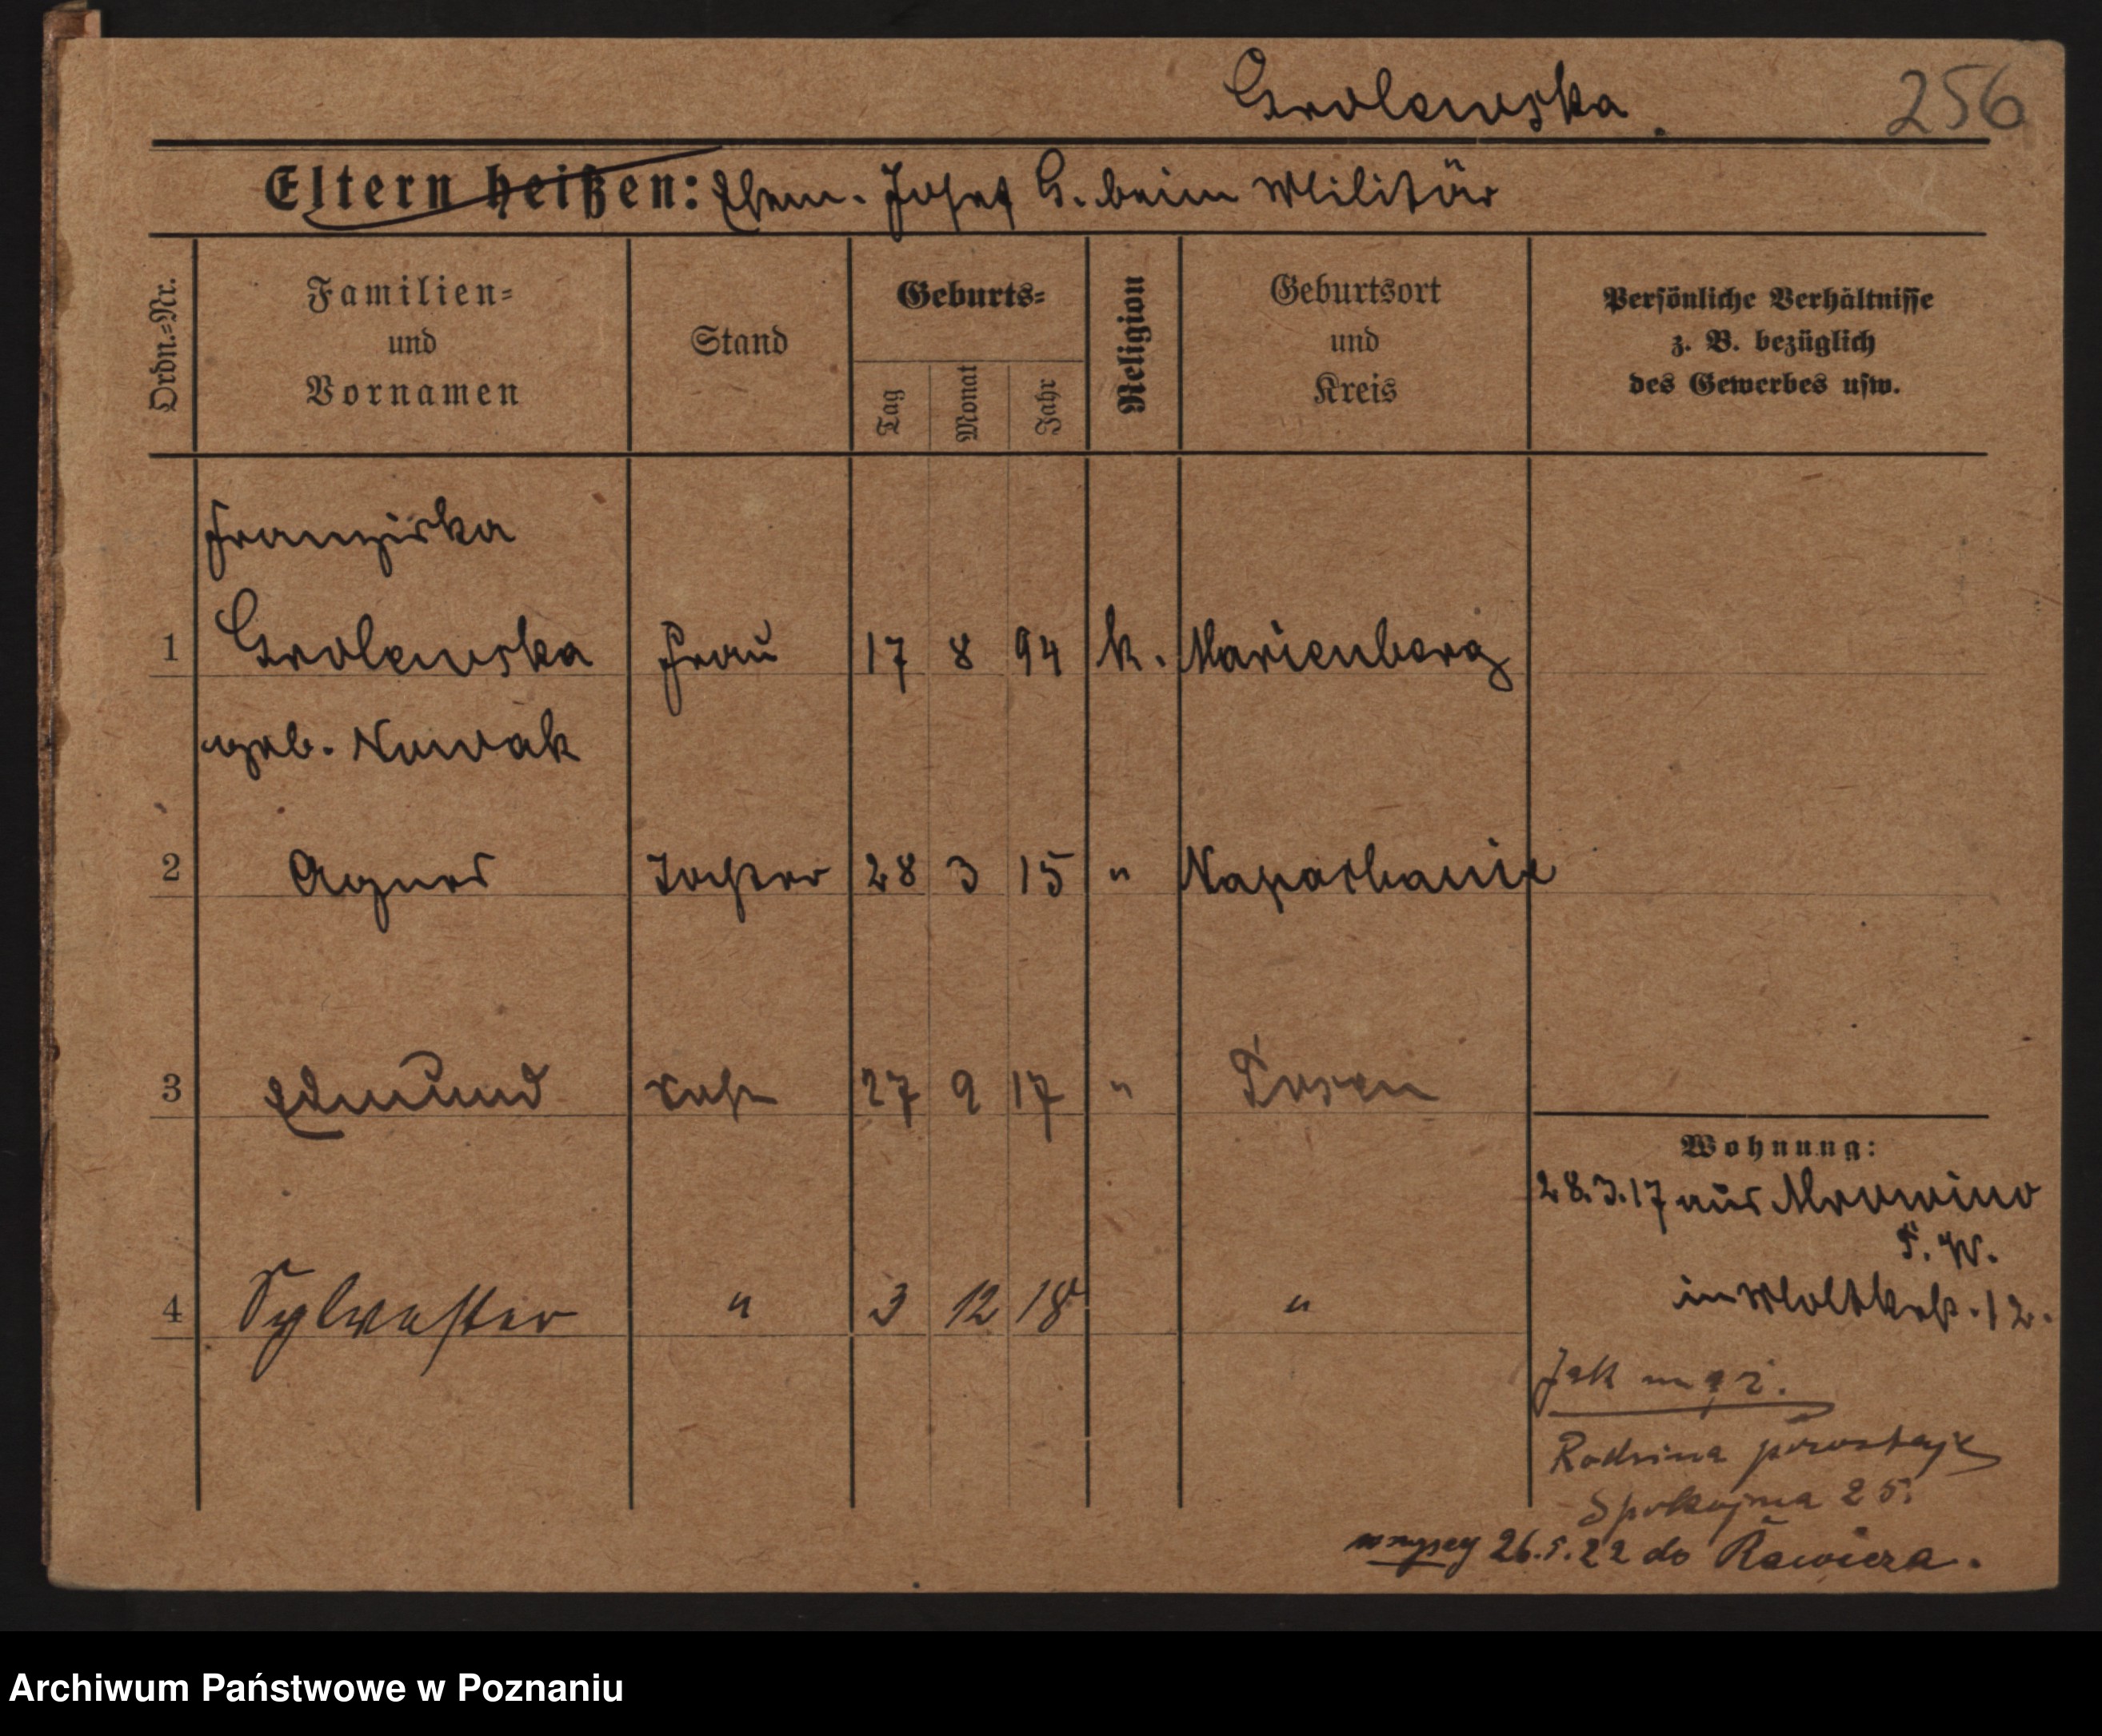 Grolewska.
256
Eltern heißen: Ehem. Josef G. beim Militär
Ordn.=Nr.
Familien=
und
Vornamen
Stand
Geburts=
Tag
Monat
Jahr
Religion
Geburtsort
und
Kreis
Persönliche Verhältnisse
z. B. bezüglich
des Gewerbes usw.
Franziska
1 Grolewska Frau 17 8 94 k. Marienberg
geb. Nowak
2 Agnes Tochter 28 3 15 " Napachanie
3 Edmund Sohn 27 9 17 " Posen
Wohnung:
28.3.17 aus Mrowino
P. W.
in Moltkestr. 12.
4 Sylvester " 3 12 18 "
Jak mąż.
Rodzina pozostaje
Spokojna 25.
wszyscy 26.5.22 do Rawicza.
Archiwum Państwowe w Poznaniu